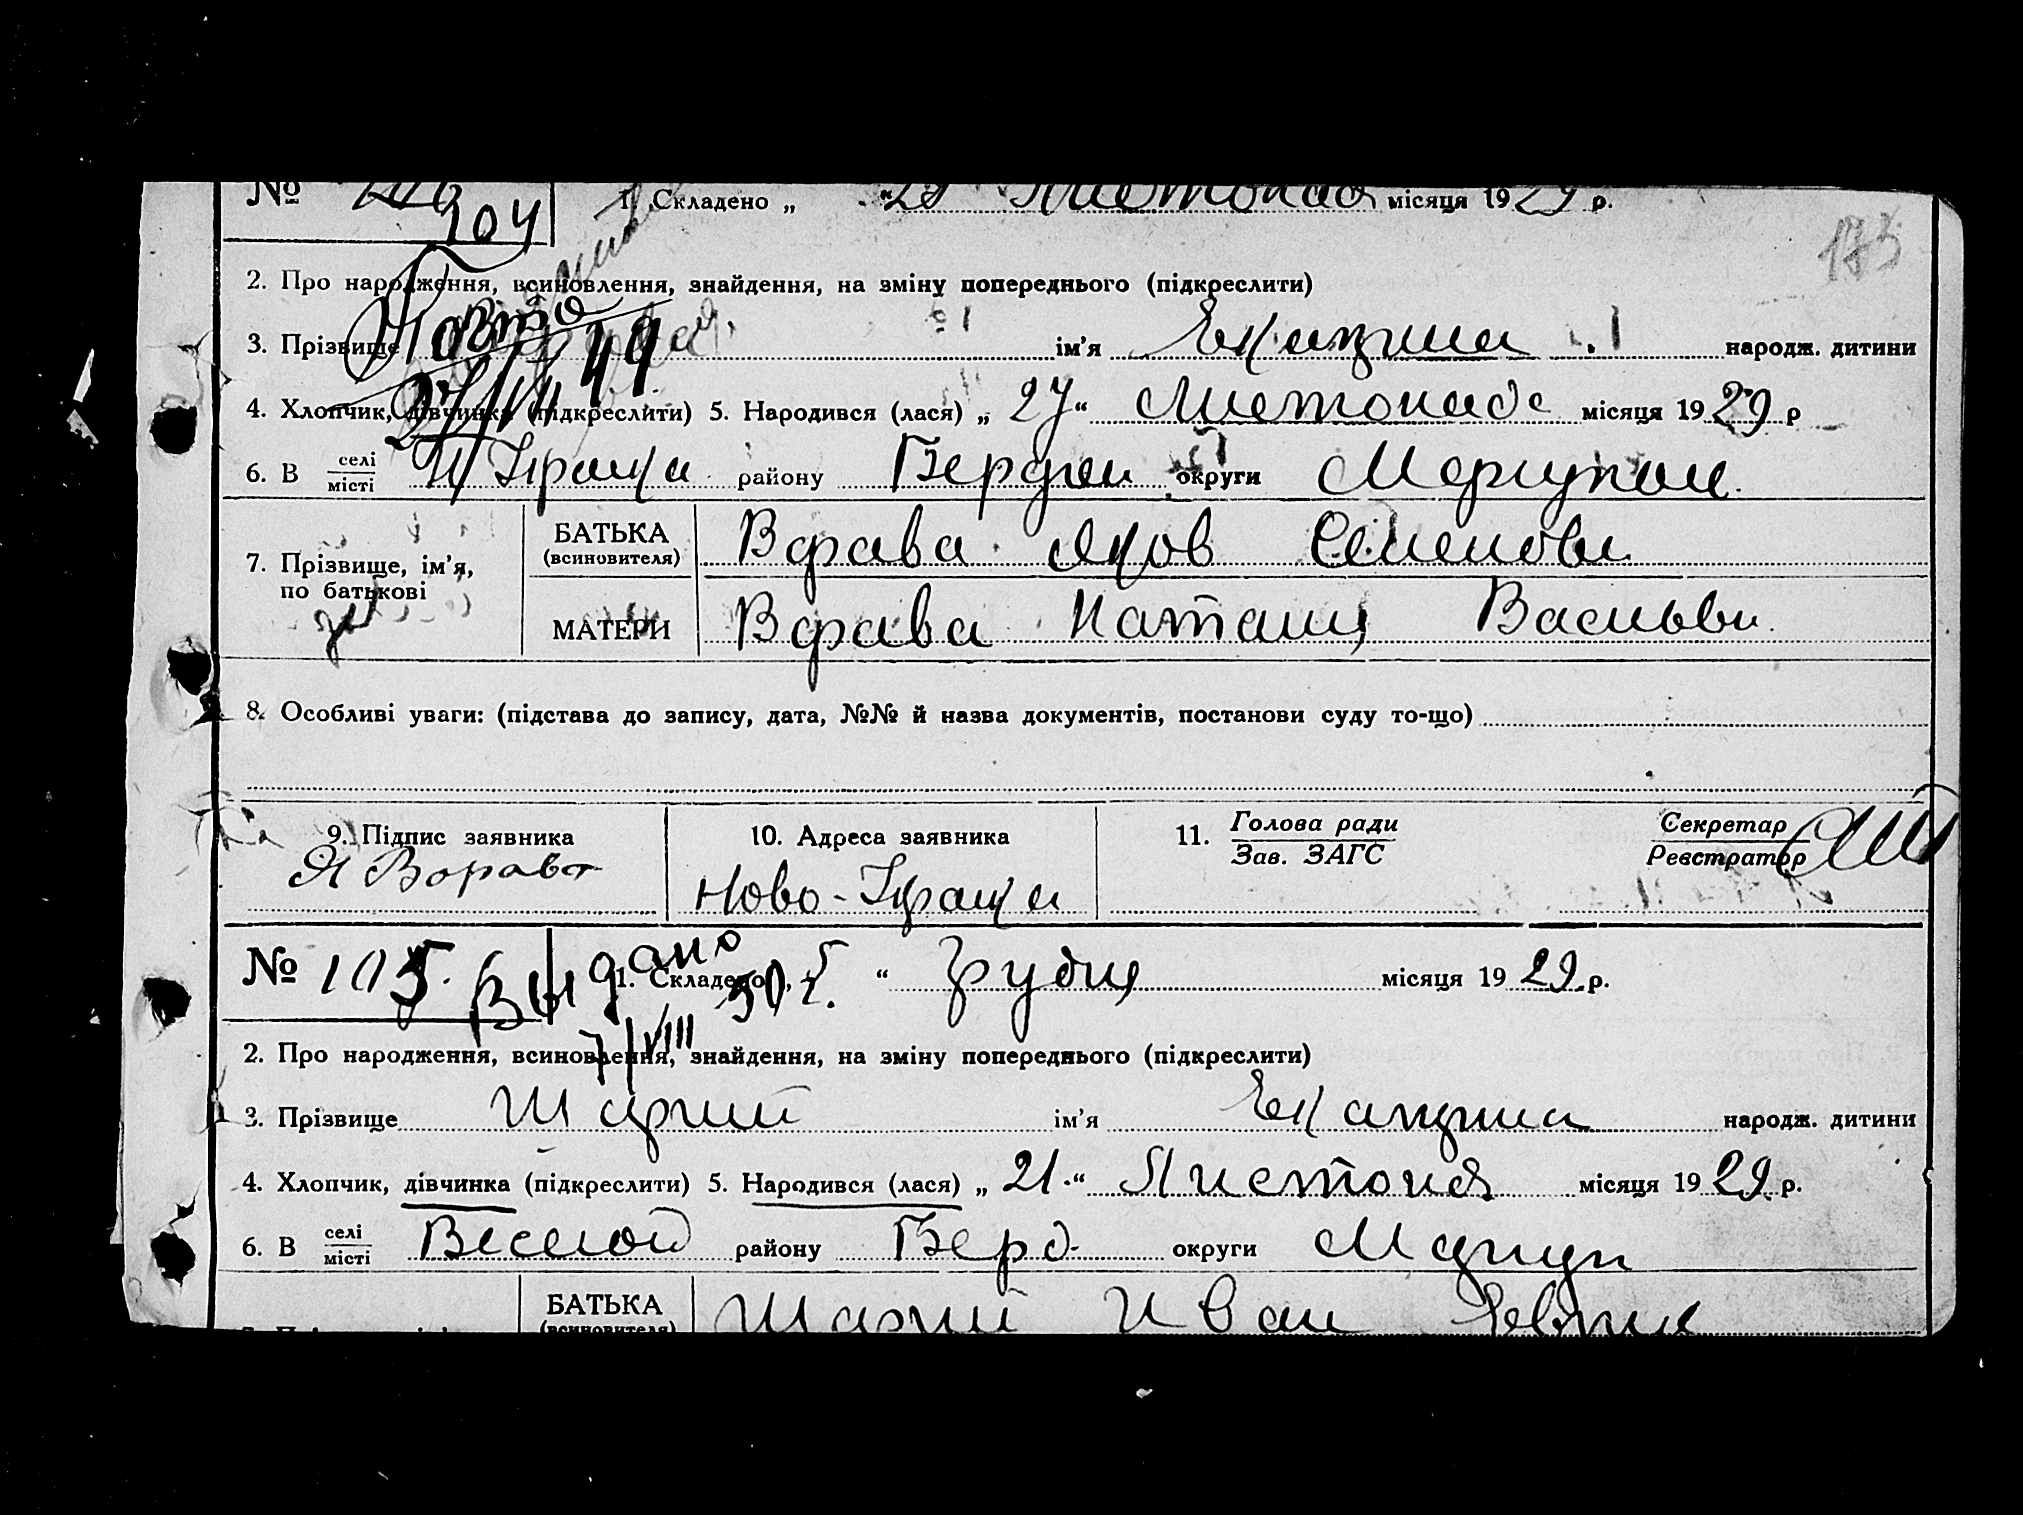 № 104 1. Складено „ 29 Листопад місяця 1929 р.
173
2. Про народження, всиновлення, знайдення, на зміну попереднього (підкреслити)
3. Прізвище ім'я Екатрина народж. дитини
4. Хлопчик, дівчинка (підкреслити) 5. Народився (лася) „ 27 “ Листопада місяця 1929 р
6. В селі місті району Бердян округи Мариупол
7. Прізвище, ім'я, по батькові
БАТЬКА (всиновителя) Вфава Яков Семенови
МАТЕРИ Вфава Наталия Васильви
8. Особливі уваги: (підстава до запису, дата, №№ й назва документів, постанови суду то-що)
9. Підпис заявника 10. Адреса заявника 11. Голова ради Зав. ЗАГС Секретар Реєстратор
Ново-
№ 105. Выдано 1. Складено „ 5 “ Грудня місяця 1929 р.
7/VIII 50 г.
2. Про народження, всиновлення, знайдення, на зміну попереднього (підкреслити)
3. Прізвище Шарий ім'я Екатрина народж. дитини
4. Хлопчик, дівчинка (підкреслити) 5. Народився (лася) „ 21 “ Листопад місяця 1929 р.
6. В селі місті Веселой району Берд округи Мариуп
БАТЬКА (всиновителя) Шарий Иван